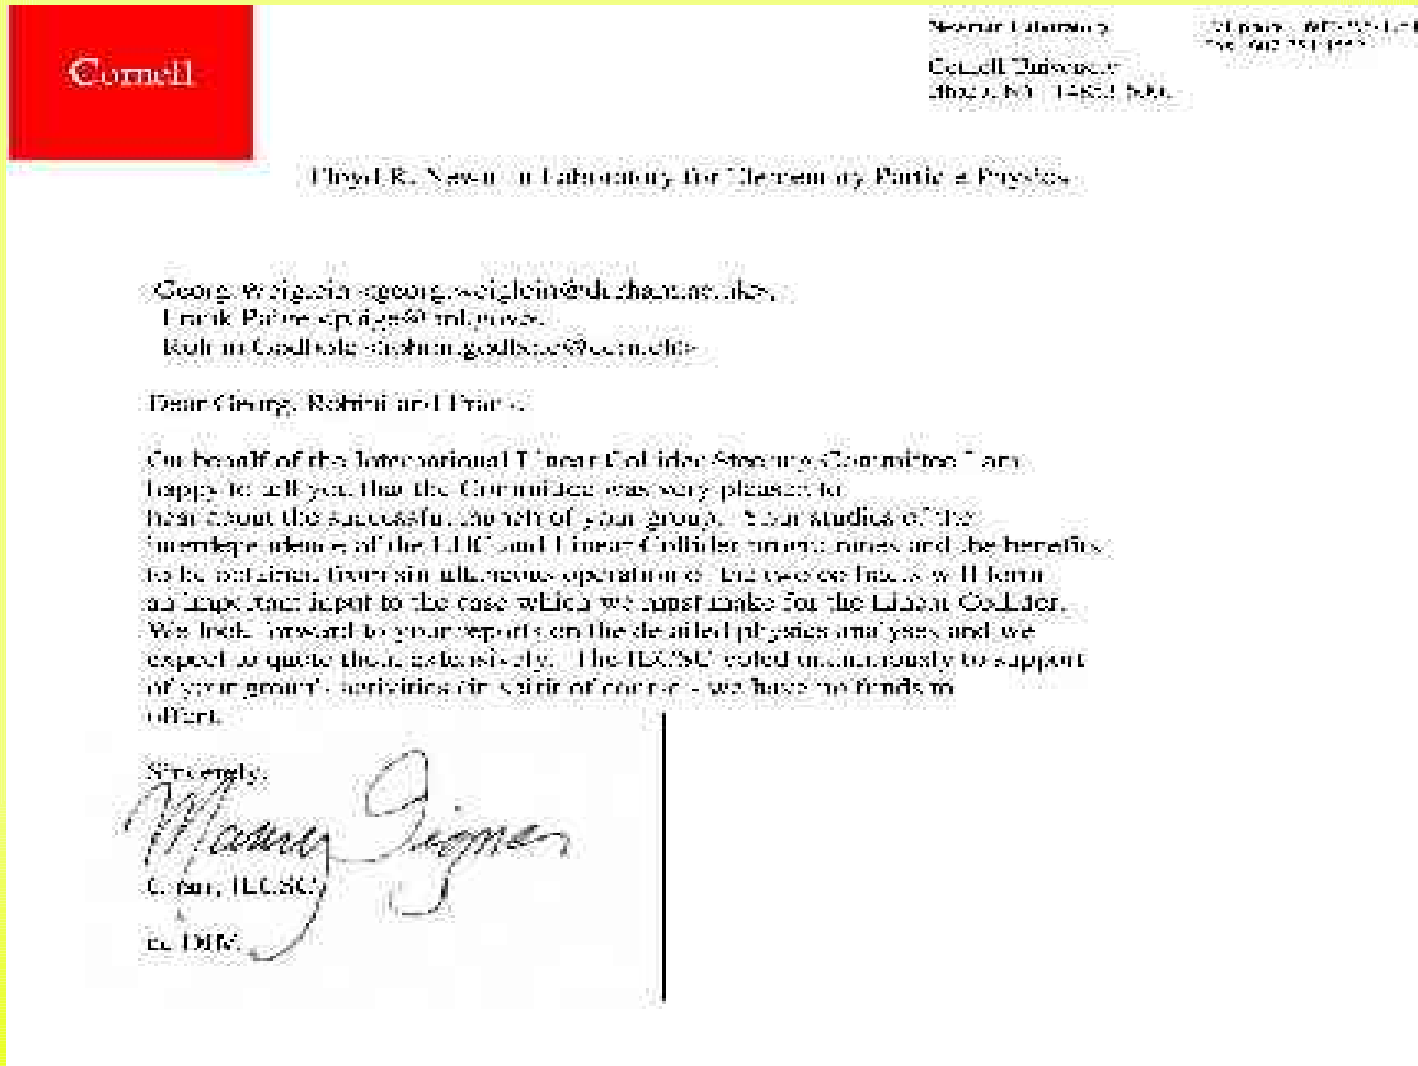 Cornell
Newman Laboratory
Cornell University
Floyd R. Newman Laboratory for Elementary Particle Physics
Georg Weiglein <georg.weiglein@durham.ac.uk>,
Frank Paige
Rohini Godbole
Dear Georg, Rohini and Frank,
On behalf of the International Linear Collider Steering Committee I am
happy to tell you that the Committee was very pleased to
hear about the successful launch of your group. Your studies of the
interdependence of the LHC and Linear Collider programmes and the benefits
to be obtained from simultaneous operation of the two colliders will form
an important input to the case which we must make for the Linear Collider.
We look forward to your reports on the detailed physics analyses and we
expect to quote them extensively. The ILCSC voted unanimously to support
of your group's activities (in spirit of course - we have no funds to
offer).
Sincerely,
Maury Tigner
Chair, ILCSC